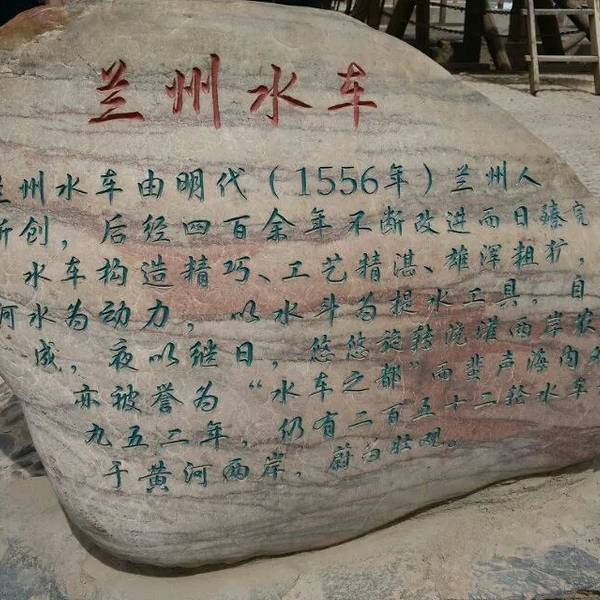 兰州水车
兰州水车由明代（1556年）兰州人
所创，后经四百余年不断改进而日臻完
水车构造精巧、工艺精湛、雄浑粗犷，
河水为动力，以水斗为提水工具，自
成，夜以继日，悠悠旋转浇灌两岸农
亦被誉为“水车之都”而蜚声海内
九五二年，仍有二百五十二轮水车
于黄河两岸，蔚为壮观。